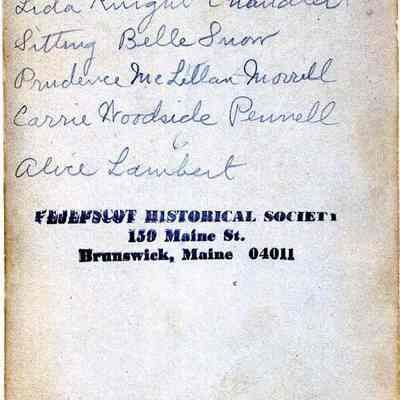 Lida Knight Chandler
Sitting Belle Snow
Prudence McLellan Morrell
Carrie Woodside Pennell
Alice Lambert
PEJEPSCOT HISTORICAL SOCIETY
159 Maine St.
Brunswick, Maine 04011